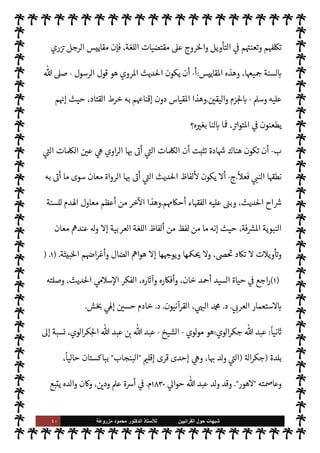 تكلفهم وتعنتهم في التأويل والخروج على مقتضيات اللغة، فإن مقاييس الرجل تزري
بالسنة جميعها، وهذه المقاييس:أ- أن يكون الحديث المروي هو قول الرسول - صلى الله
عليه وسلم - بالجزم واليقين.وهذا المقياس دون إقناعهم به خرط القتاد، حيث إنهم
يطعنون في المتواتر، فما بالنا بغيره؟
ب- أن تكون هناك شهادة تثبت أن الكلمات التي أتى بها الراوي هي عين الكلمات التي
نطقها النبي فعلاً.ج- ألا يكون لألفاظ الحديث التي أتى بها الرواة معان سوى ما أتى به
شراح الحديث، وبنى عليه الفقهاء أحكامهم.وهذا الآخر من أعظم معاول الهدم للسنة
النبوية المشرفة، حيث إنه ما من لفظ من ألفاظ اللغة العربية إلا وله عندهم معان
وتأويلات لا تكاد تحصى، ولا يحكمها ويوجهها إلا هواهم الضال وأغراضهم الخبيثة. (١. (
(١)راجع في حياة السيد أحمد خان، وأفكاره وآثاره، الفكر الإسلامي الحديث، وصلته
بالاستعمار العربي. د. محمد البهي، القرآنيون. د. خادم حسين إلهي بخش.
ثانياً: عبد الله جكرالوي:هو مولوي - الشيخ - عبد الله بن عبد الله الجكرالوي. نسبة إلى
بلدة (جكرالة (التي ولد بها، وهي إحدى قرى إقليم "البنجاب" بباكستان حالياً،
وعاصمته "لاهور". وقد ولد عبد الله حوالي ١٨٣٠م. في أسرة علم ودين، وكان والده يتبع
شبهات حول القرآنيين للأستاذ الدكتور محمود مزروعة ٤٠